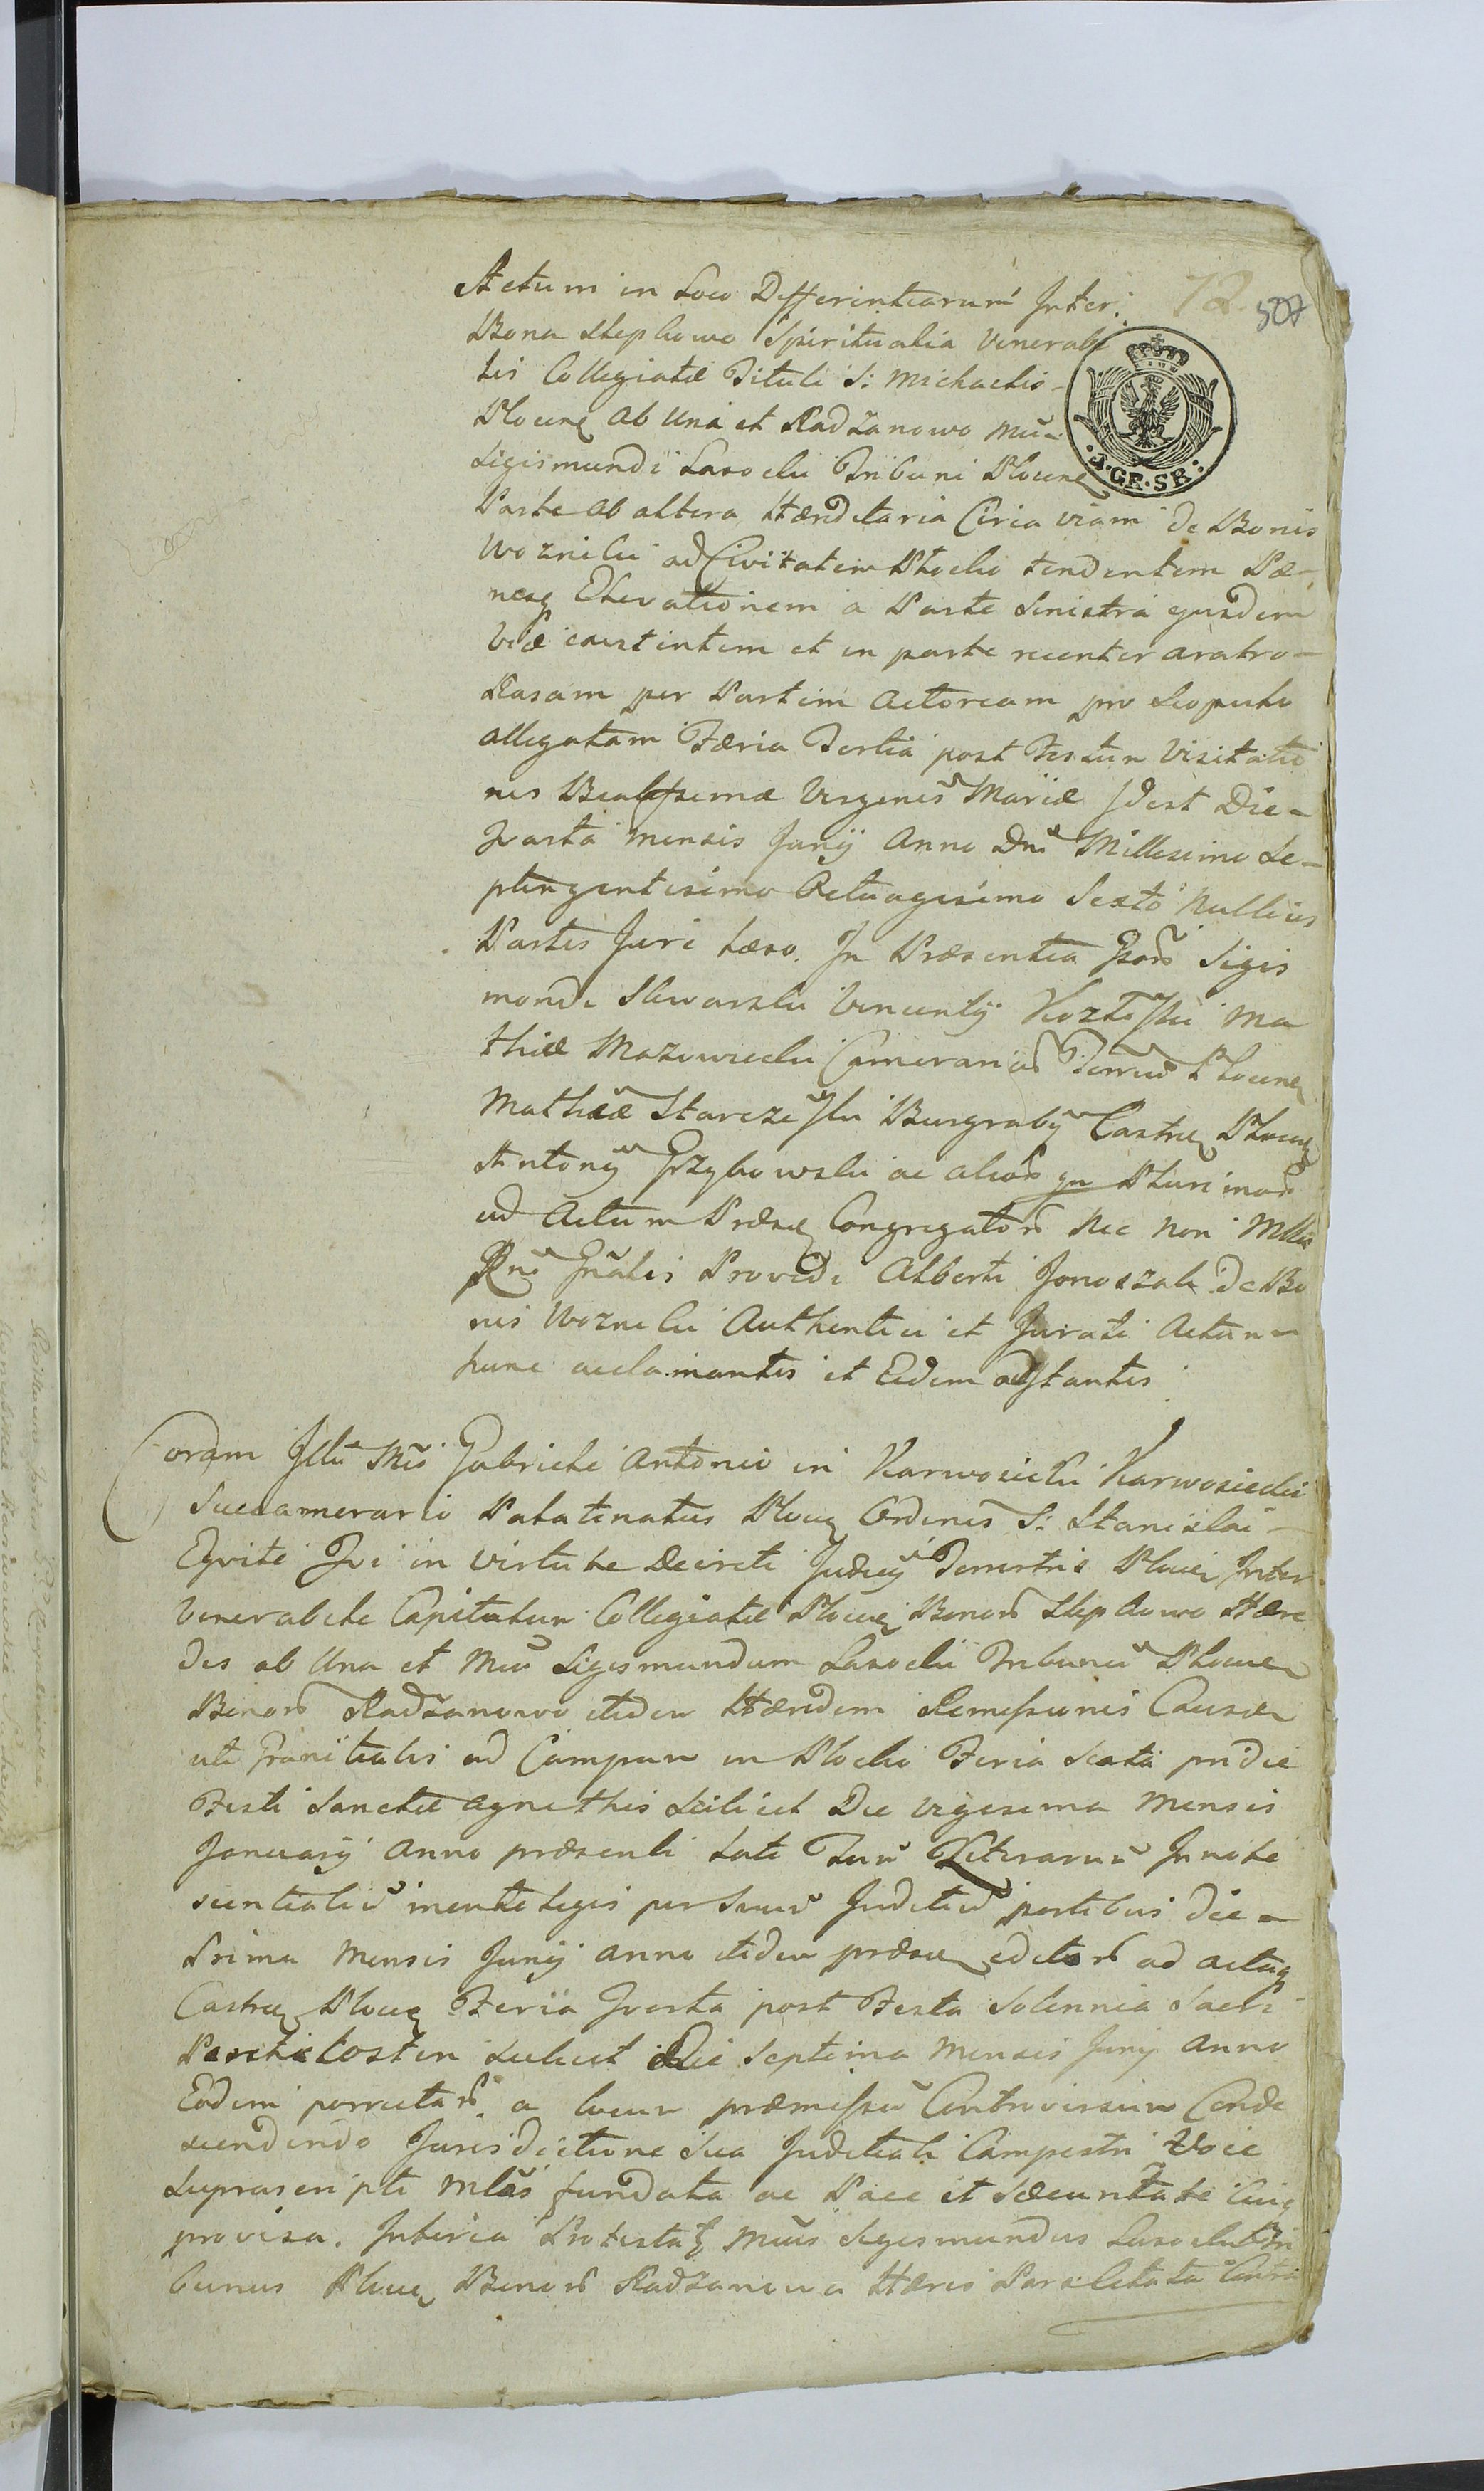 Actum in Loco Differentiarum Inter
72. 507
Bona Slepkowo Spiritualia Venerabi
lis Collegiatæ Tituli S: Michaelis
Plocens Ab Una et Radzanowo Mci
Sigismundi Lasocki Tribuni Plocens
J. GR. SR:
Parte ab altera Hæreditaria Circa viam de Bonis
Wozniki ad Civitatem Plocko tendentem Pæ-
nesq Elevationem a Parte Sinistra ejusdem
Viæ existentem et in parte recenter aratro-
Rasam per Partem Actoream pro Scopulo
allegatam Færia Tertia post Festum Visitatio
nis Beatissimæ Virginis Mariæ Idest Die-
Quarta mensis July Anno Dni Millesimo Se-
ptingentesimo Octuagesimo Sexto Nullius
Partis Juri læso. In Præsentia Gsors Sigis
mondi Skwarski Vincentÿ Kozlisski Ma
thiæ Mazowiecki Camerarior Terrus Plocens
Mathiæ Starczesski Burgrabÿ Castrs Plocens
Antonÿ Grzybowski ac alior qu Plurimor
ad Actum Præsens Congregator Nec Non Mlis
Rni Gnalis Providi Alberti Jonoszak de Bo
nis Woznicki Authentici et Jurati Actum-
hunc acclamantis et Eidem adstantis

Coram Illu Mco Gabriele Antonio in Karwosieki Karwosiecki
Succamerario Palatinatus Plocens Ordinis S: Stanislai-
Eqvite Qvi in virtute Decreti Judicÿ Terrestris Plocens Inter
Venerabile Capitulum Collegiatæ Plocens Bonor Slepkowo Hære
des ab Una et Mcu Sigismundum Lasocki Tribunu Plocens
Bonor Radzanowo itidem Hæredem Remissionis Causæ
uti Granitialis ad Campum in Plocko Feria Sexta pridie
Festi Sanctæ Agnethis Scilicet Die vigesima Mensis
January Anno præsenti Lati Tum Literarum Innote
scentialiu mente legis per Suum Juditiu partibus die-
Prima Mensis Juny anno itidem præsen editor ad acta
Castrens Plocens Feria Qvarta post Festa Solennia Sacri
Pentecosten Scilicet Die Septima Mensis Juny Anno
Eodem porrectar a locum præmissu Controversum Conde
scendendo Jurisdictione Sua Juditiali Campestri Voce
Suprascripti Mlis fundata ac Pace et Securitate Cuiq
provisa. Interea Protestatq Mcus Sigismundus Lasocki Tri
bunus Plocens Bonor Radzanowo Hæres Paratitata Contra